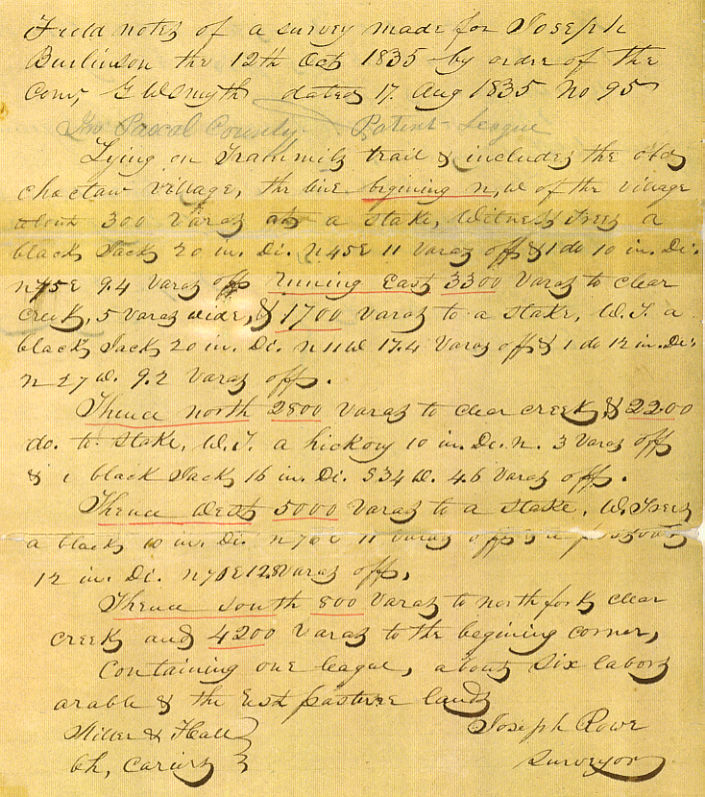 Field notes of a survey made for Joseph
Burlinson the 12th Oct 1835 by order of the
Com, G W Smyth dated 17. Aug 1835 No 95
Pascal County Patent League
Lying on Trammils trail & includes the old
choctaw village, the line begining n, w of the village
about 300 Varas at a stake, Witness Trees a
black Jack 20 in. Di. N45E 11 Varas off & 1 do 10 in. Di.
N75E 9.4 Varas off runing East 3300 Varas to clear
creek, 5 varas wide, & 1700 varas to a stake, W. T. a
black Jack 20 in. Di. N11W 17.4 Varas off & 1 do 12 in. Di.
N 27 W. 9.2 Varas off.
Thence north 2800 Varas to clear creek, & 2200
do. to stake, W. T. a hickory 10 in. Di. N. 3 Varas off
& 1 black Jack 16 in. Di. S34W. 4.6 Varas off.
Thence West 5000 Varas to a stake, W. Trees
a black 10 in. Di. N70E 11 varas off & a post oak
12 in. Di. N71E 12.8 varas off,
Thence south 800 Varas to north fork clear
creek and 4200 Varas to the begining corner,
Containing one league, about six labors
arable & the Est pasture lands
Miller & Hall
Ch, Cariers
Joseph Rowe
Surveyor